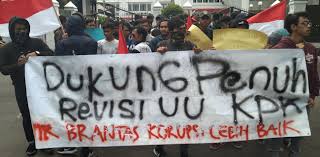 DUKUNG PENUH
REVISI UU KPK
BRANTAS KORUPSI LEBIH BAIK